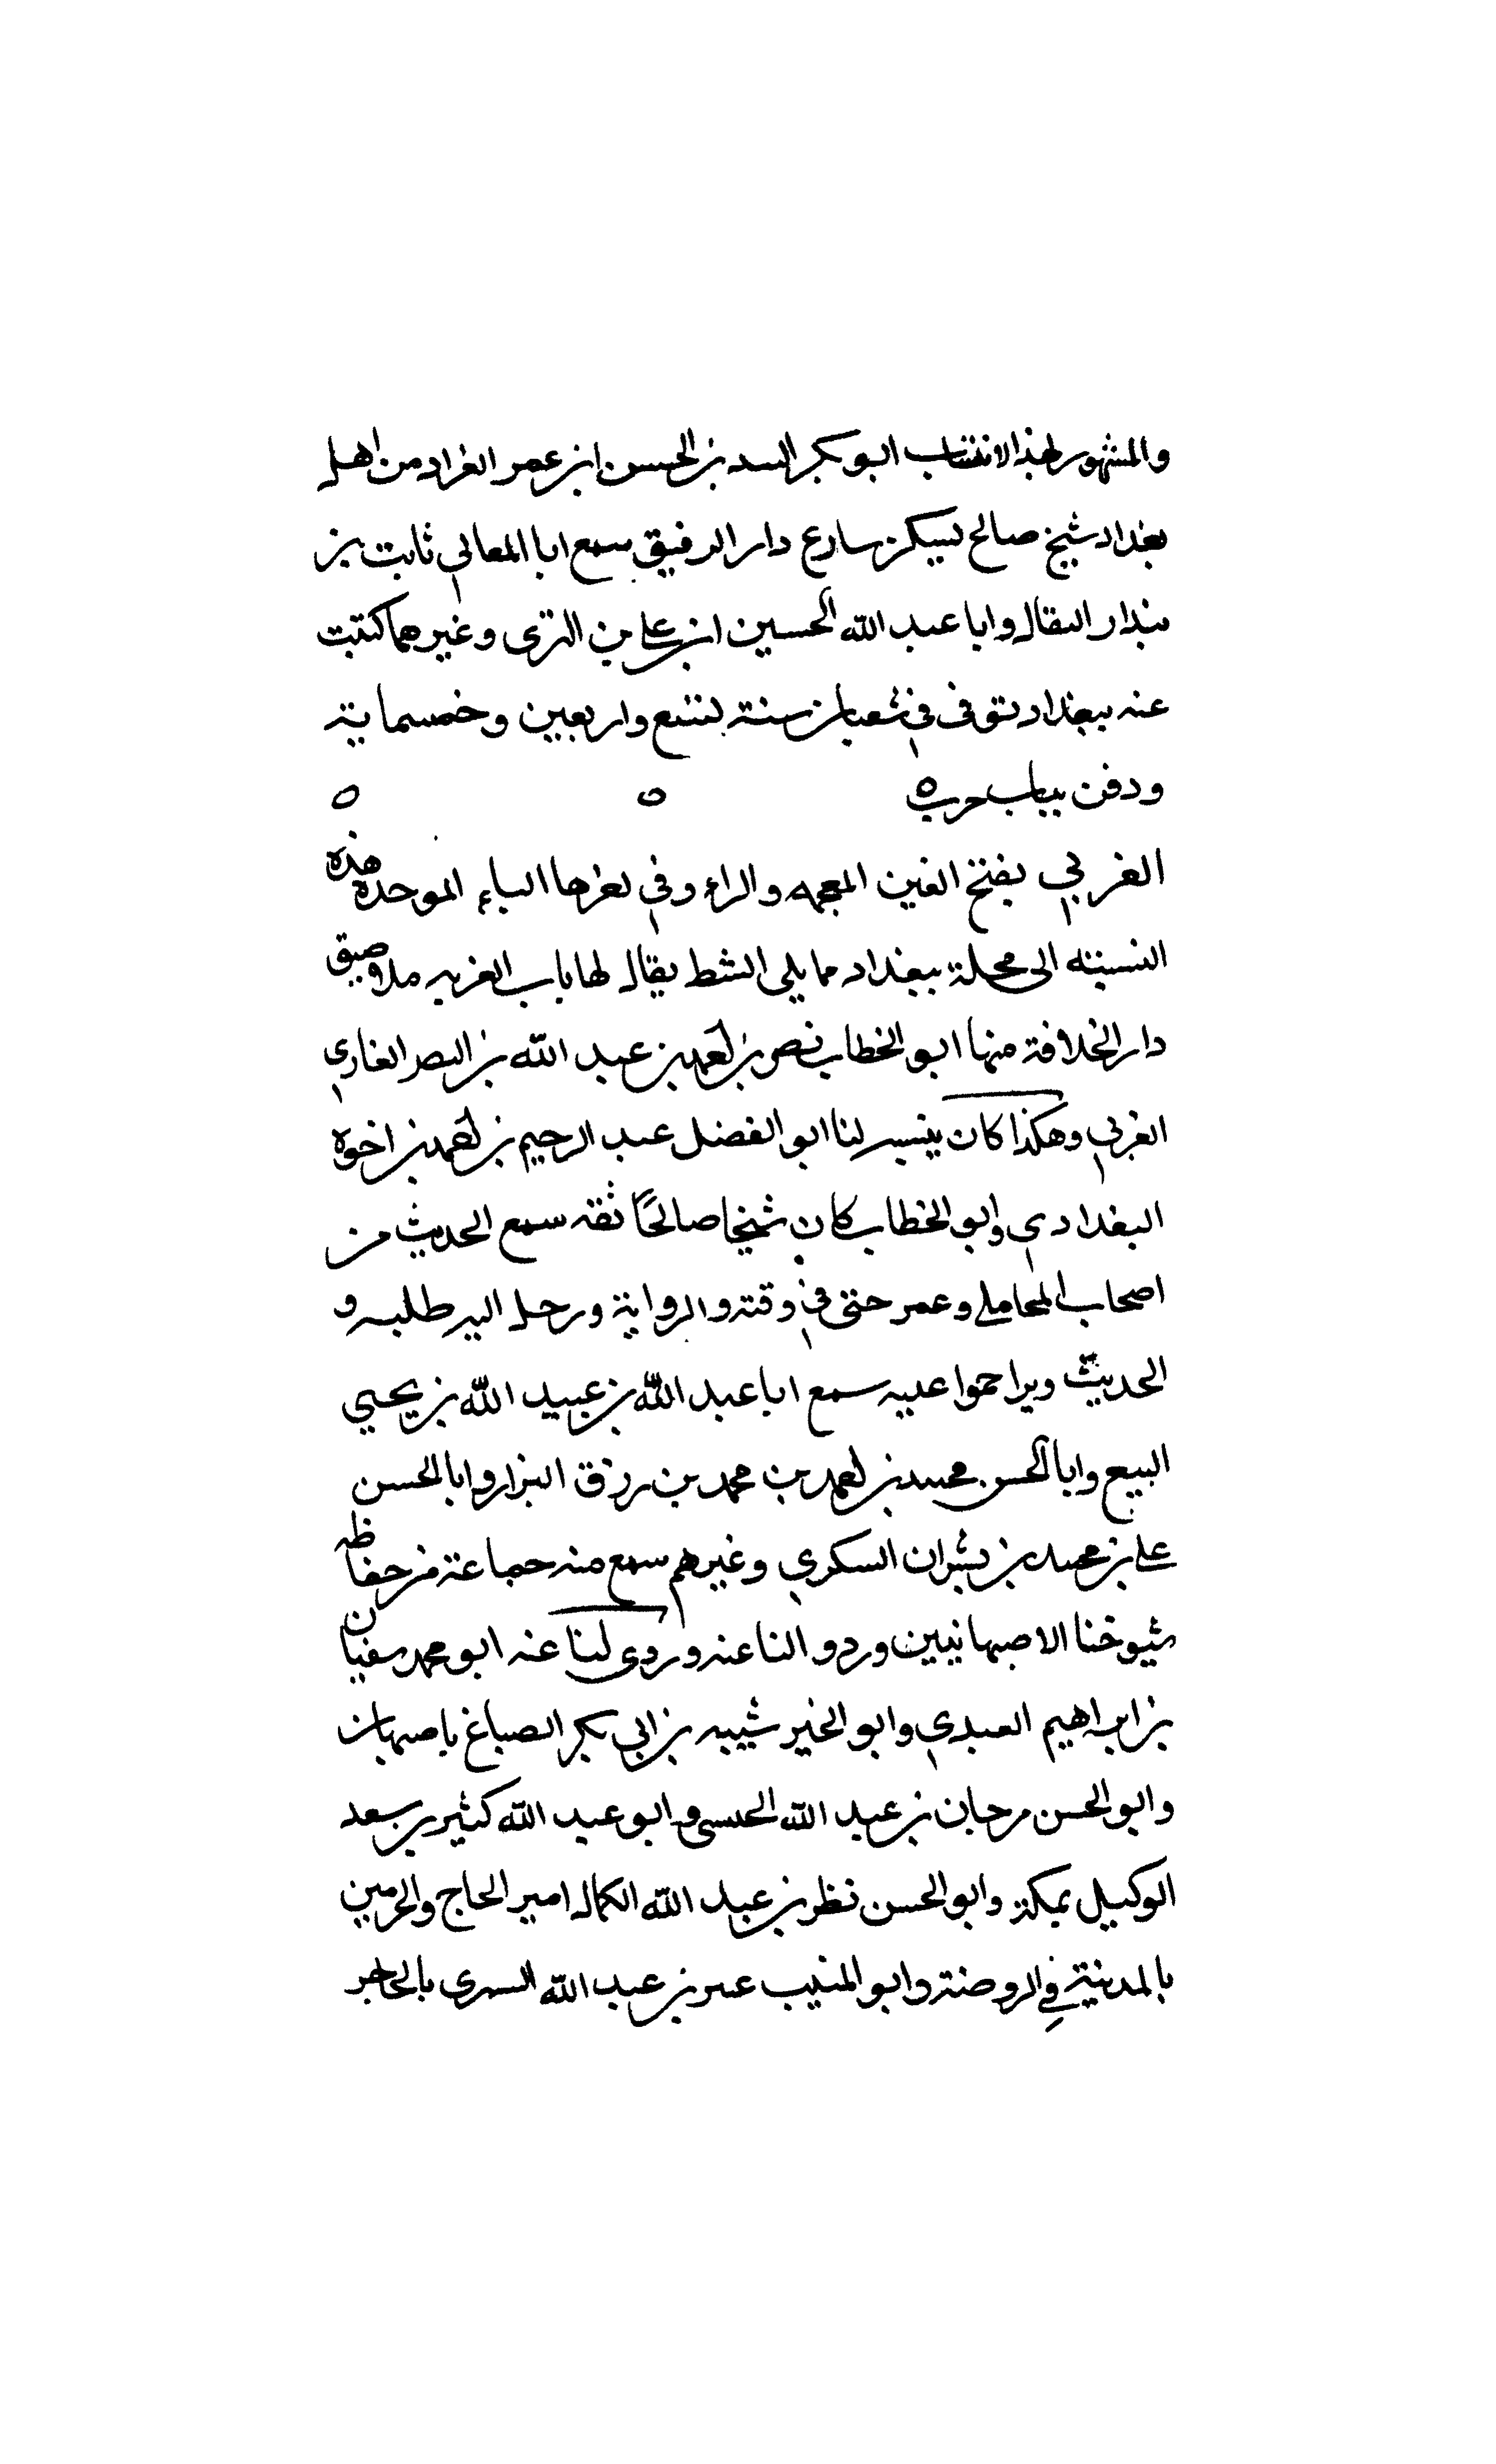 والمشهور بهذا الانتساب ابو بكر السد بن الحسن ابن عمر الغراد من اهل
بغداد شيخ صالح يسكن سارع دار الرقيق سمع ابا المعالي ثابت بن
بندار البقال وابا عبد الله الحسين ابن علي بن البري وغيرهما كتبت
عنه ببغداد توفى في شعبان سنة تسع واربعين وخمسماية
ودفن بباب حرب ٥ ٥ ٥
الغربي بفتح الغين المعجمه والراء وفي اخرها الباء الموحدة هذه
النسبته الى محلة ببغداد مما يلى الشط يقال لها باب الغربه ملاصق
دار الخلافة منها ابو الخطاب نصر بن احمد بن عبد الله بن البصر الغاري
الغربي وهكذا كان ينسبه لنا ابو الفضل عبد الرحيم بن احمد بن اخوة
البغدادي وابو الخطاب كان شيخا صالحًا ثقه سمع الحديث من
اصحاب المحاملي وعمر حتى في وقته والرواية ورحل اليه طلبه و
الحديث ويراحموا عليه سمع ابا عبد الله بن عبيد الله بن يحيي
البيع وابا الحسن محمد بن احمد بن محمد بن رزق البزار وابا الحسن
علي بن محمد بن بشران السكري وغيرهم سمع منه جماعة من حفاظه
شيوخنا الاصبهانيين وردو النا عنه وروى لنا عنه ابو محمد سفيان
بن ابراهيم العبدي وابو الخير شيبه بن ابي بكر الصباغ باصبهان
وابو الحسن مرجان بن عبد الله الحبسي وابو عبد الله كثير بن سعد
الوكيل بمكة وابو الحسن نظر بن عبد الله الكمال امير الحاج والحرمين
بالمدينة في الروضة وابو المنيب عمر بن عبد الله السرى بالحاجر